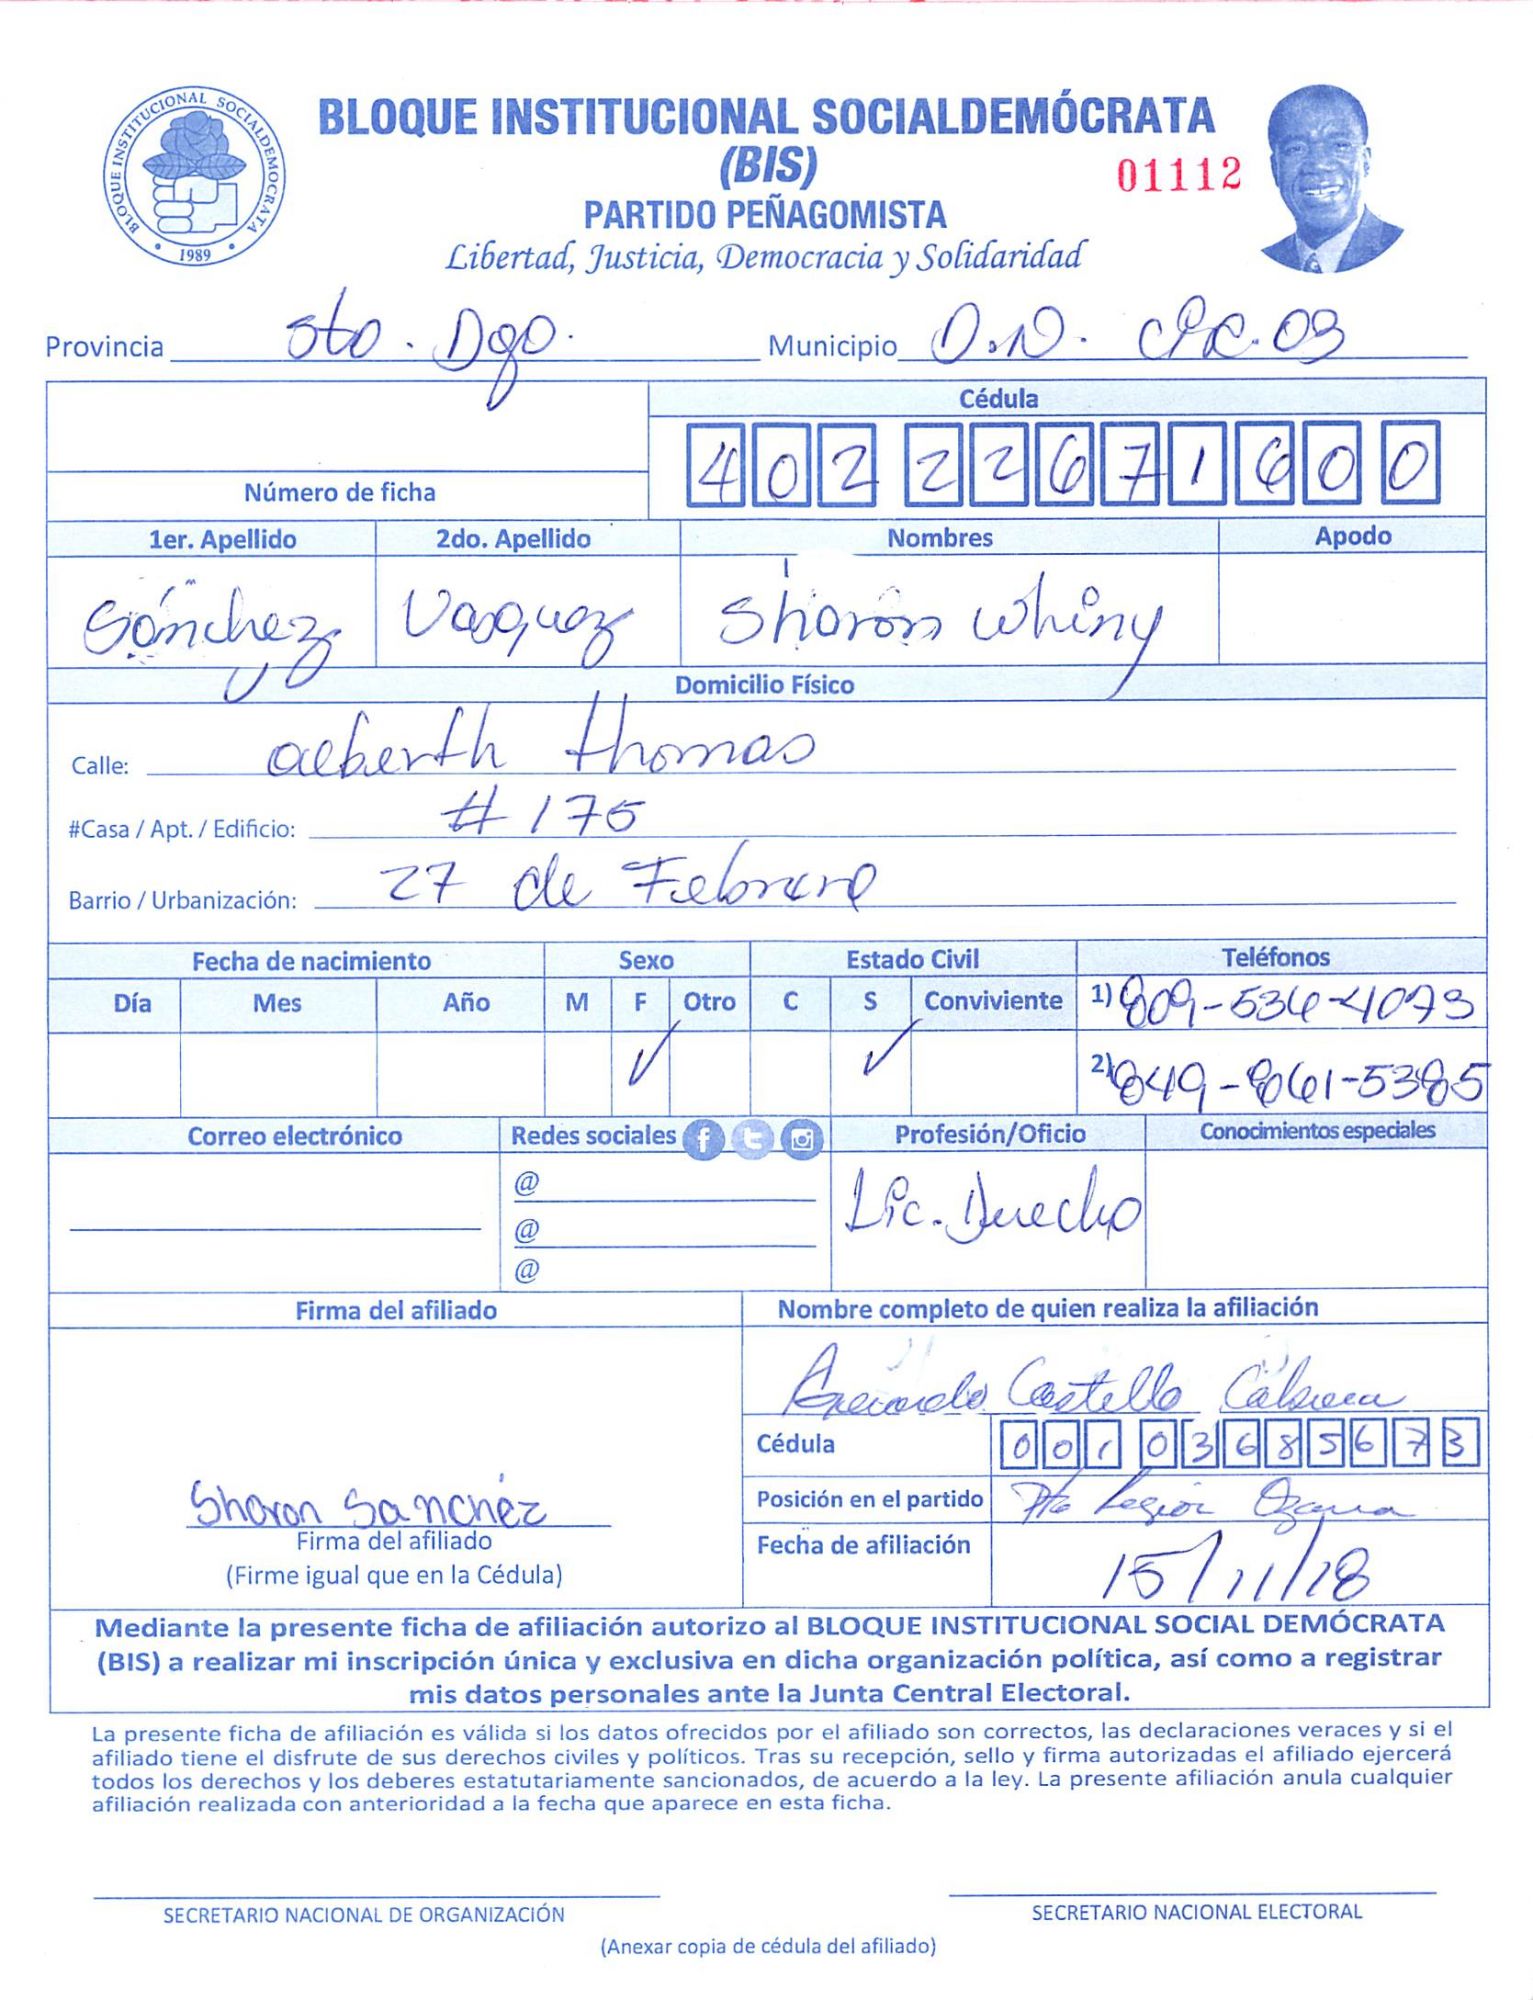 BLOQUE INSTITUCIONAL SOCIALDEMOCRATA
1989
BLOQUE INSTITUCIONAL SOCIALDEMÓCRATA
(BIS)
01112
PARTIDO PEÑAGOMISTA
Libertad, Justicia, Democracia y Solidaridad
Provincia Sto. Dgo. Municipio D.N. CIR. 03
Cédula
402 2267160 0
Número de ficha
1er. Apellido 2do. Apellido Nombres Apodo
Sánchez Vasquez Sharon Whiny
Domicilio Físico
Calle: alberth thomas
#Casa / Apt. / Edificio: # 175
Barrio / Urbanización: 27 de Febrero
Fecha de nacimiento Sexo Estado Civil Teléfonos
Día Mes Año M F Otro C S Conviviente 1) 809-536-4073
✓ ✓ 2) 849-861-5385
Correo electrónico Redes sociales Profesión/Oficio Conocimientos especiales
@
@
@
Lic. Derecho
Firma del afiliado Nombre completo de quien realiza la afiliación
Castillo Cabrera
Cédula 001 0368567 3
Sharon Sanchez
Posición en el partido Pte Region Ozama
Firma del afiliado
Fecha de afiliación 15/11/18
(Firme igual que en la Cédula)
Mediante la presente ficha de afiliación autorizo al BLOQUE INSTITUCIONAL SOCIAL DEMÓCRATA
(BIS) a realizar mi inscripción única y exclusiva en dicha organización política, así como a registrar
mis datos personales ante la Junta Central Electoral.
La presente ficha de afiliación es válida si los datos ofrecidos por el afiliado son correctos, las declaraciones veraces y si el
afiliado tiene el disfrute de sus derechos civiles y políticos. Tras su recepción, sello y firma autorizadas el afiliado ejercerá
todos los derechos y los deberes estatutariamente sancionados, de acuerdo a la ley. La presente afiliación anula cualquier
afiliación realizada con anterioridad a la fecha que aparece en esta ficha.
SECRETARIO NACIONAL DE ORGANIZACIÓN SECRETARIO NACIONAL ELECTORAL
(Anexar copia de cédula del afiliado)